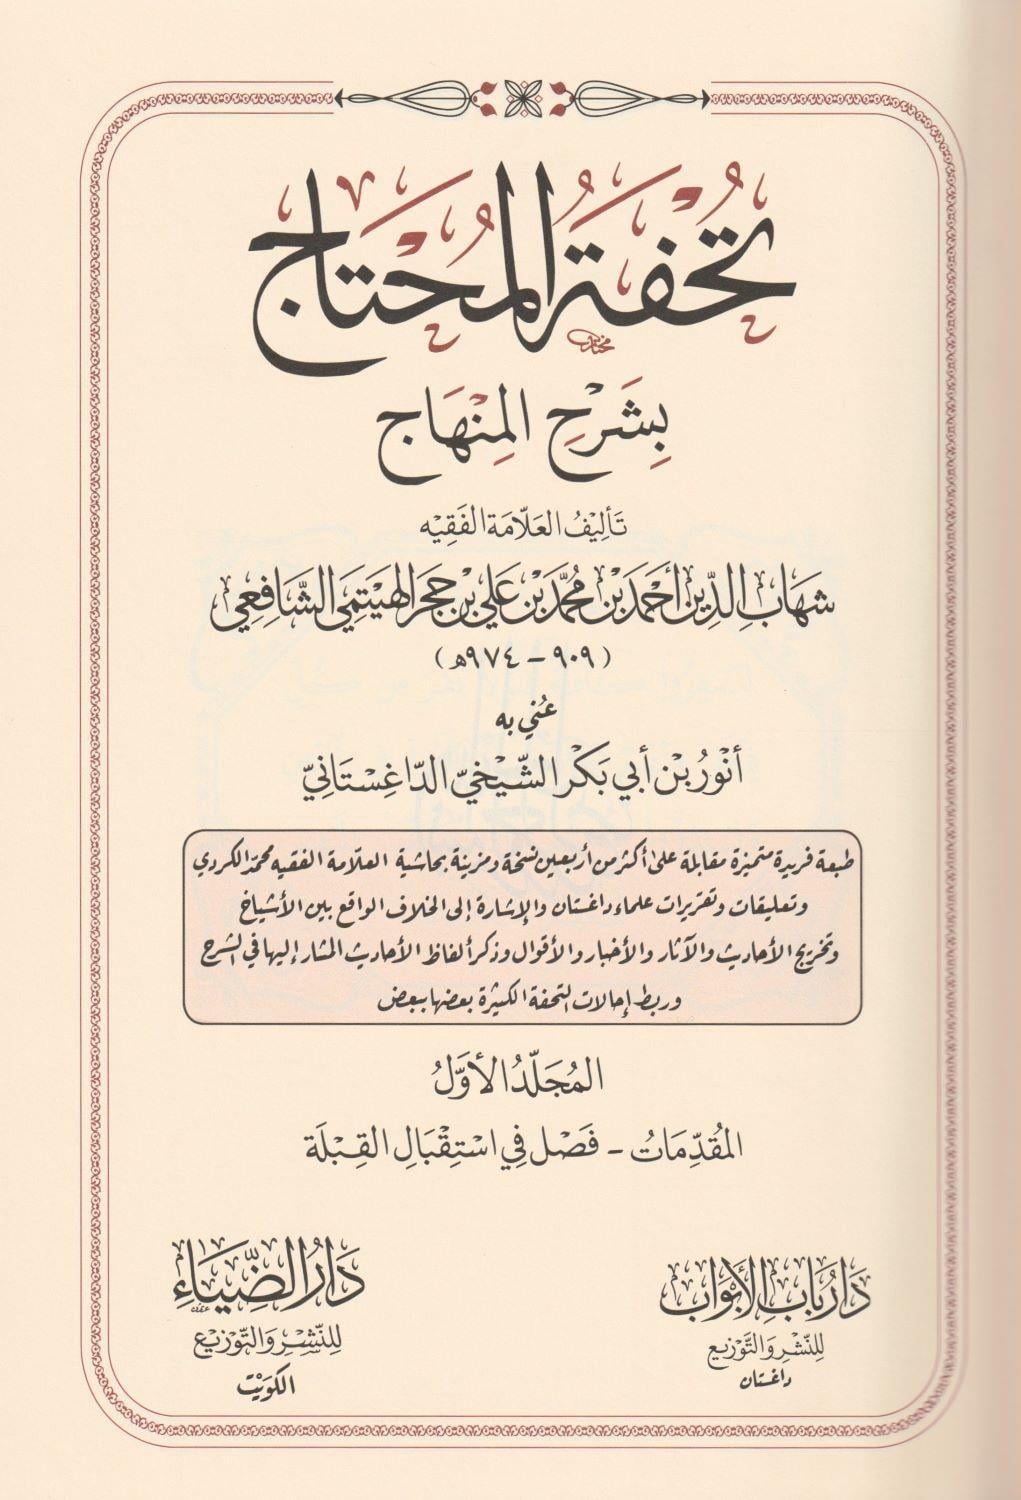 تُحْفَةُ المُحْتَاجِ
بِشَرْحِ المِنْهَاجِ
تَأْلِيفُ العَلّامَةِ الفَقِيْهِ
شِهَابِ الدِّينِ أَحْمَدَ بْنِ مُحَمَّدِ بْنِ عَلِي بْنِ حَجَرِ الهَيْتَمِي الشَّافِعِي
(٩٠٩ – ٩٧٤هـ)
عُنِيَ بِهِ
أَنْوَرُ بْنُ أَبِي بَكْرِ الشَّيْخِيّ الدَّاغِسْتَانِيّ
طبعة فريدة متميزة مقابلة على أكثر من أربعين نسخة ومزينة بحاشية العلامة الفقيه محمّد الكردي
وتعليقات وتقريرات علماء داغستان والإشارة إلى الخلاف الواقع بين الأشياخ
وتخريج الأحاديث والآثار والأخبار والأقوال وذكر ألفاظ الأحاديث المشار إليها في الشرح
وربط إحالات التحفة الكثيرة بعضها ببعض
المُجَلّدُ الأوَّلُ
المُقَدِّمَاتُ – فَصْل فِي اسْتِقْبَالِ القِبْلَة
دَارُ بَابِ الأَبْوَابِ
لِلنَّشْرِ وَالتَّوْزِيعِ
داغستان
دَارُ الضِّيَاءِ
لِلنَّشِرِ وَالتَّوْزِيْع
الكُوَيْت